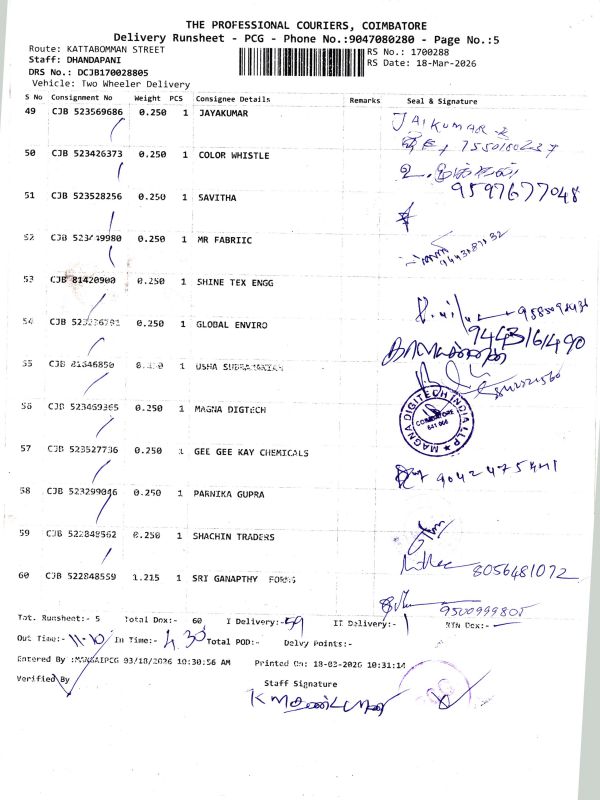 THE PROFESSIONAL COURIERS, COIMBATORE
Delivery Runsheet - PCG - Phone No.:9047080280 - Page No.:5
Route: KATTABOMMAN STREET
RS No.: 1700288
Staff: DHANDAPANI
RS Date: 18-Mar-2026
DRS No.: DCJB170028805
Vehicle: Two Wheeler Delivery
S No Consignment No Weight PCS Consignee Details Remarks Seal & Signature
49 CJB 523569686 0.250 1 JAYAKUMAR
JAIKUMAR
7550180237
50 CJB 523426373 0.250 1 COLOR WHISTLE
9597677048
51 CJB 523528256 0.250 1 SAVITHA
52 CJB 0.250 1 MR FABRIIC
53 CJB 81420900 0.250 1 SHINE TEX ENGG
54 CJB 0.250 1 GLOBAL ENVIRO
9443161490
55 CJB 81646850 1 USHA
56 CJB 523469365 0.250 1 MAGNA DIGTECH
MAGNA DIGITECH INDIA LLP
COIMBATORE
641 004
57 CJB 523527736 0.250 1 GEE GEE KAY CHEMICALS
9042475441
58 CJB 523299046 0.250 1 PARNIKA GUPRA
59 CJB 522848562 0.250 1 SHACHIN TRADERS
8056481072
60 CJB 522848559 1.215 1 SRI GANAPTHY
9500999805
Tot. Runsheet:- 5 Total Dox:- 60 I Delivery:- 59 II Delivery:- 1 RTN Dox:-
Out Time:- 11-10 In Time:- 4.30 Total POD:- Delvy Points:-
Entered By : 03/18/2026 10:30:56 AM Printed On: 18-03-2026 10:31:14
Verified By
Staff Signature